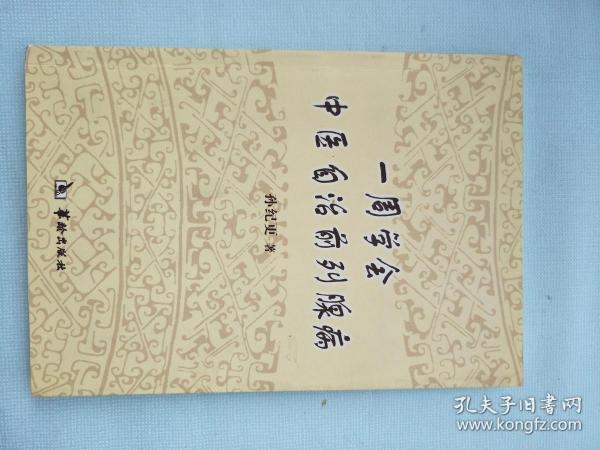 一周学会
中医自治前列腺病
孙纪更 著
华龄出版社
孔夫子旧书网
www.kongfz.com